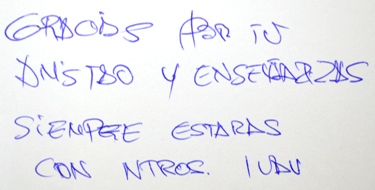 GRACIAS POR TU
AMISTAD Y ENSEÑANZAS
SIEMPRE ESTARAS
CON NTROS.